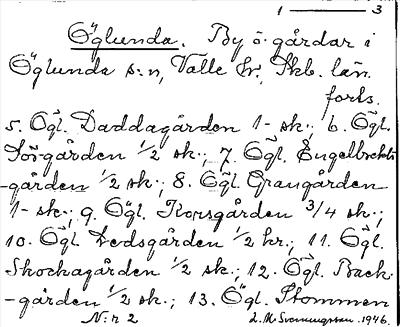 1 — 3
Öglunda. By o. gårdar i
Öglunda s:n, Valle hr, Skb. län.
forts.
5. Ögl. Daddagården 1- sk.; 6. Ögl.
Sörgården 1/2 sk.; 7. Ögl. Engelbrekts
-gården 1/2 sk.; 8. Ögl. Grangården
1- sk.; 9. Ögl. Korsgården 3/4 sk.;
10. Ögl. Ledsgården 1/2 kr.; 11. Ögl.
Skockagården 1/2 sk.; 12. Ögl. Back-
-gården 1/2 sk.; 13. Ögl. Stommen
N:r 2 1946.